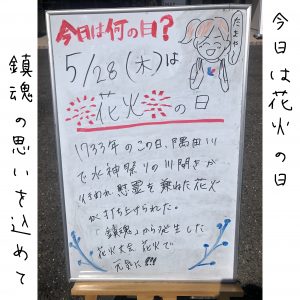 今日は花火の日
鎮魂の思いを込めて
今日は何の日?
たまや
5/28(木)は
花火の日
1733年のこの日、隅田川
で水神祭りの川開きが
行われ慰霊を兼ねた花火
が打ち上げられた。
「鎮魂」から発生した
花火大会 花火で
元気に!!!